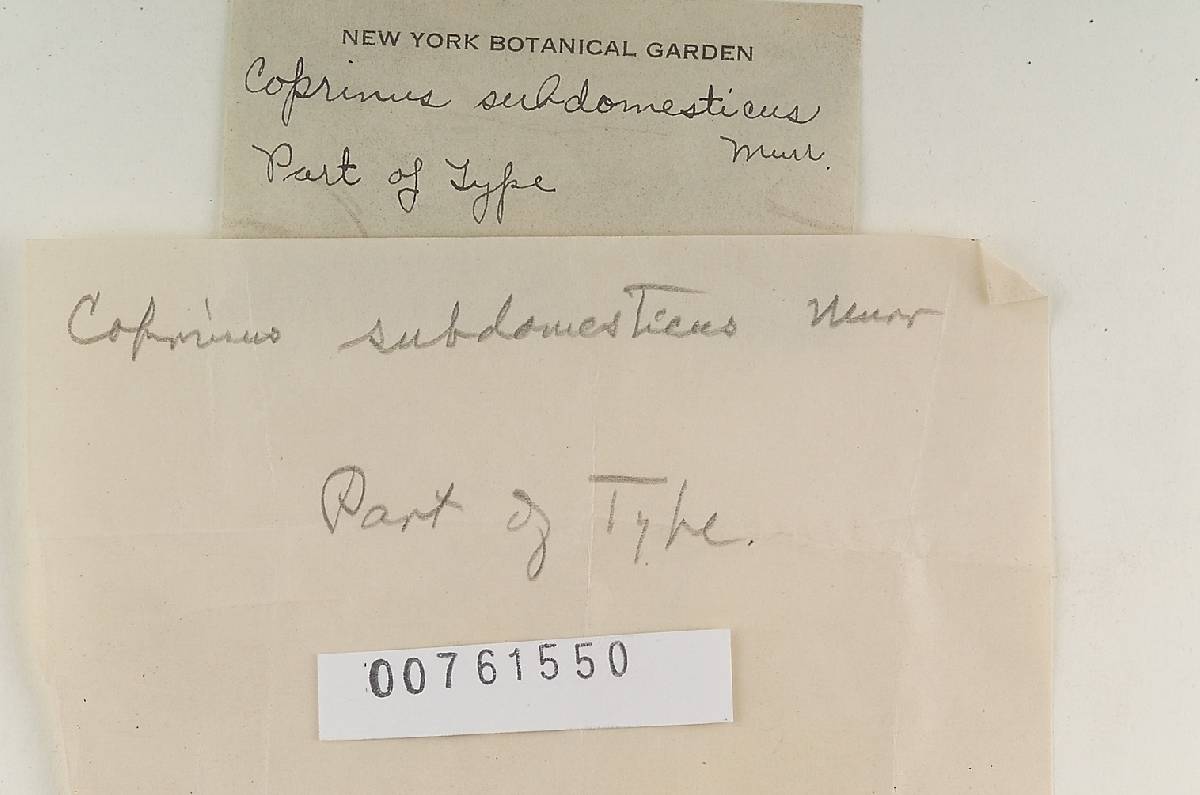 NEW YORK BOTANICAL GARDEN
Coprinus subdomesticus
Murr.
Part of Type
Coprinus subdomesticus Murr
Part of Type.
00761550